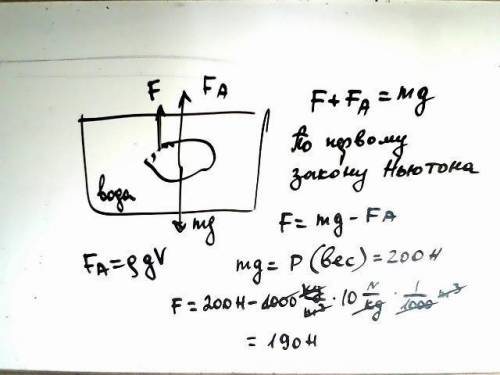 F F_A
вода
mg
F_A = ρgV
F + F_A = mg
По первому
закону Ньютона
F = mg - F_A
mg = P (вес) = 200 Н
F = 200 Н - 1000 кг/м³ · 10 N/kg · 1/1000 м³
= 190 Н